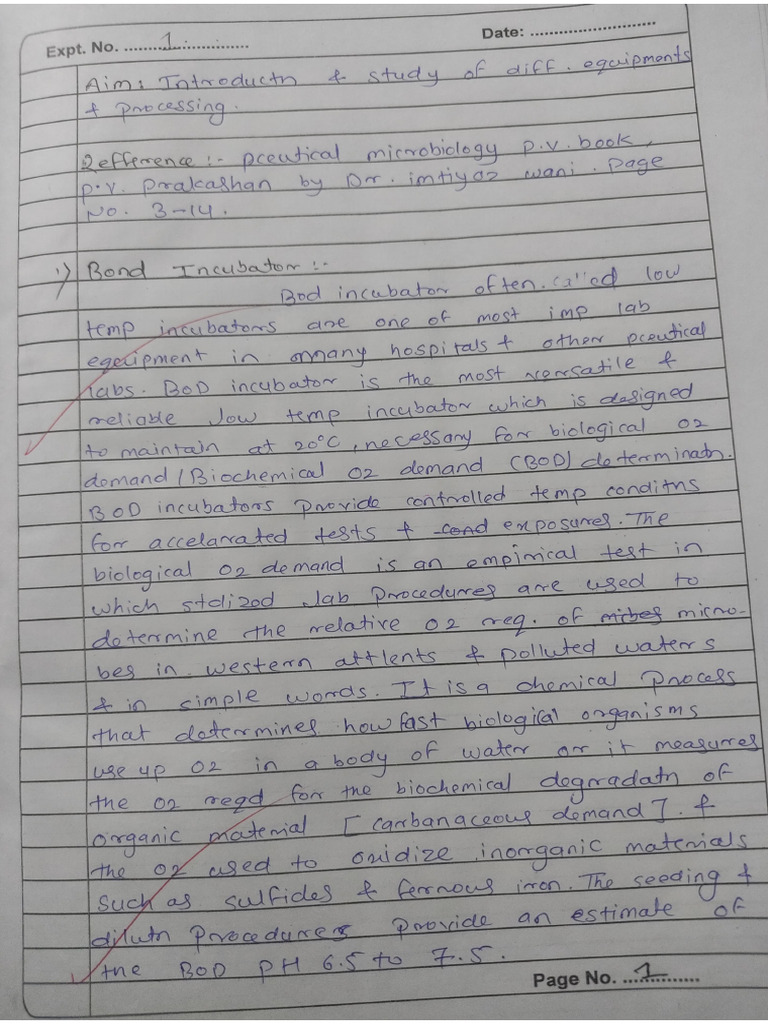 Expt. No. 1
Date:
Aim: Introductn & study of diff. equipments
& processing.
Refference :- pceutical microbiology p.v. book,
p.v. prakashan by Dr. imtiyaz wani. page
No. 3-14.
1) Bond Incubator :-
Bod incubator often called low
temp incubators are one of most imp lab
equipment in many hospitals & other pceutical
labs. BOD incubator is the most versatile &
reliable low temp incubator which is designed
to maintain at 20°C, necessary for biological O2
demand / Biochemical O2 demand (BOD) determinatn.
BOD incubators provide controlled temp conditns
for accelarated tests & cond exposures. The
biological O2 demand is an empirical test in
which stdlized lab procedures are used to
determine the relative O2 req. of micro-
bes in western attlents & polluted waters
& in simple words. It is a chemical process
that determines how fast biological organisms
use up O2 in a body of water or it measures
the O2 reqd for the biochemical degradatn of
organic material [carbanaceous demand]. &
the O2 used to oxidize inorganic materials
such as sulfides & ferrous iron. The seeding &
dilutn procedures provide an estimate of
the BOD PH 6.5 to 7.5.
Page No. 1